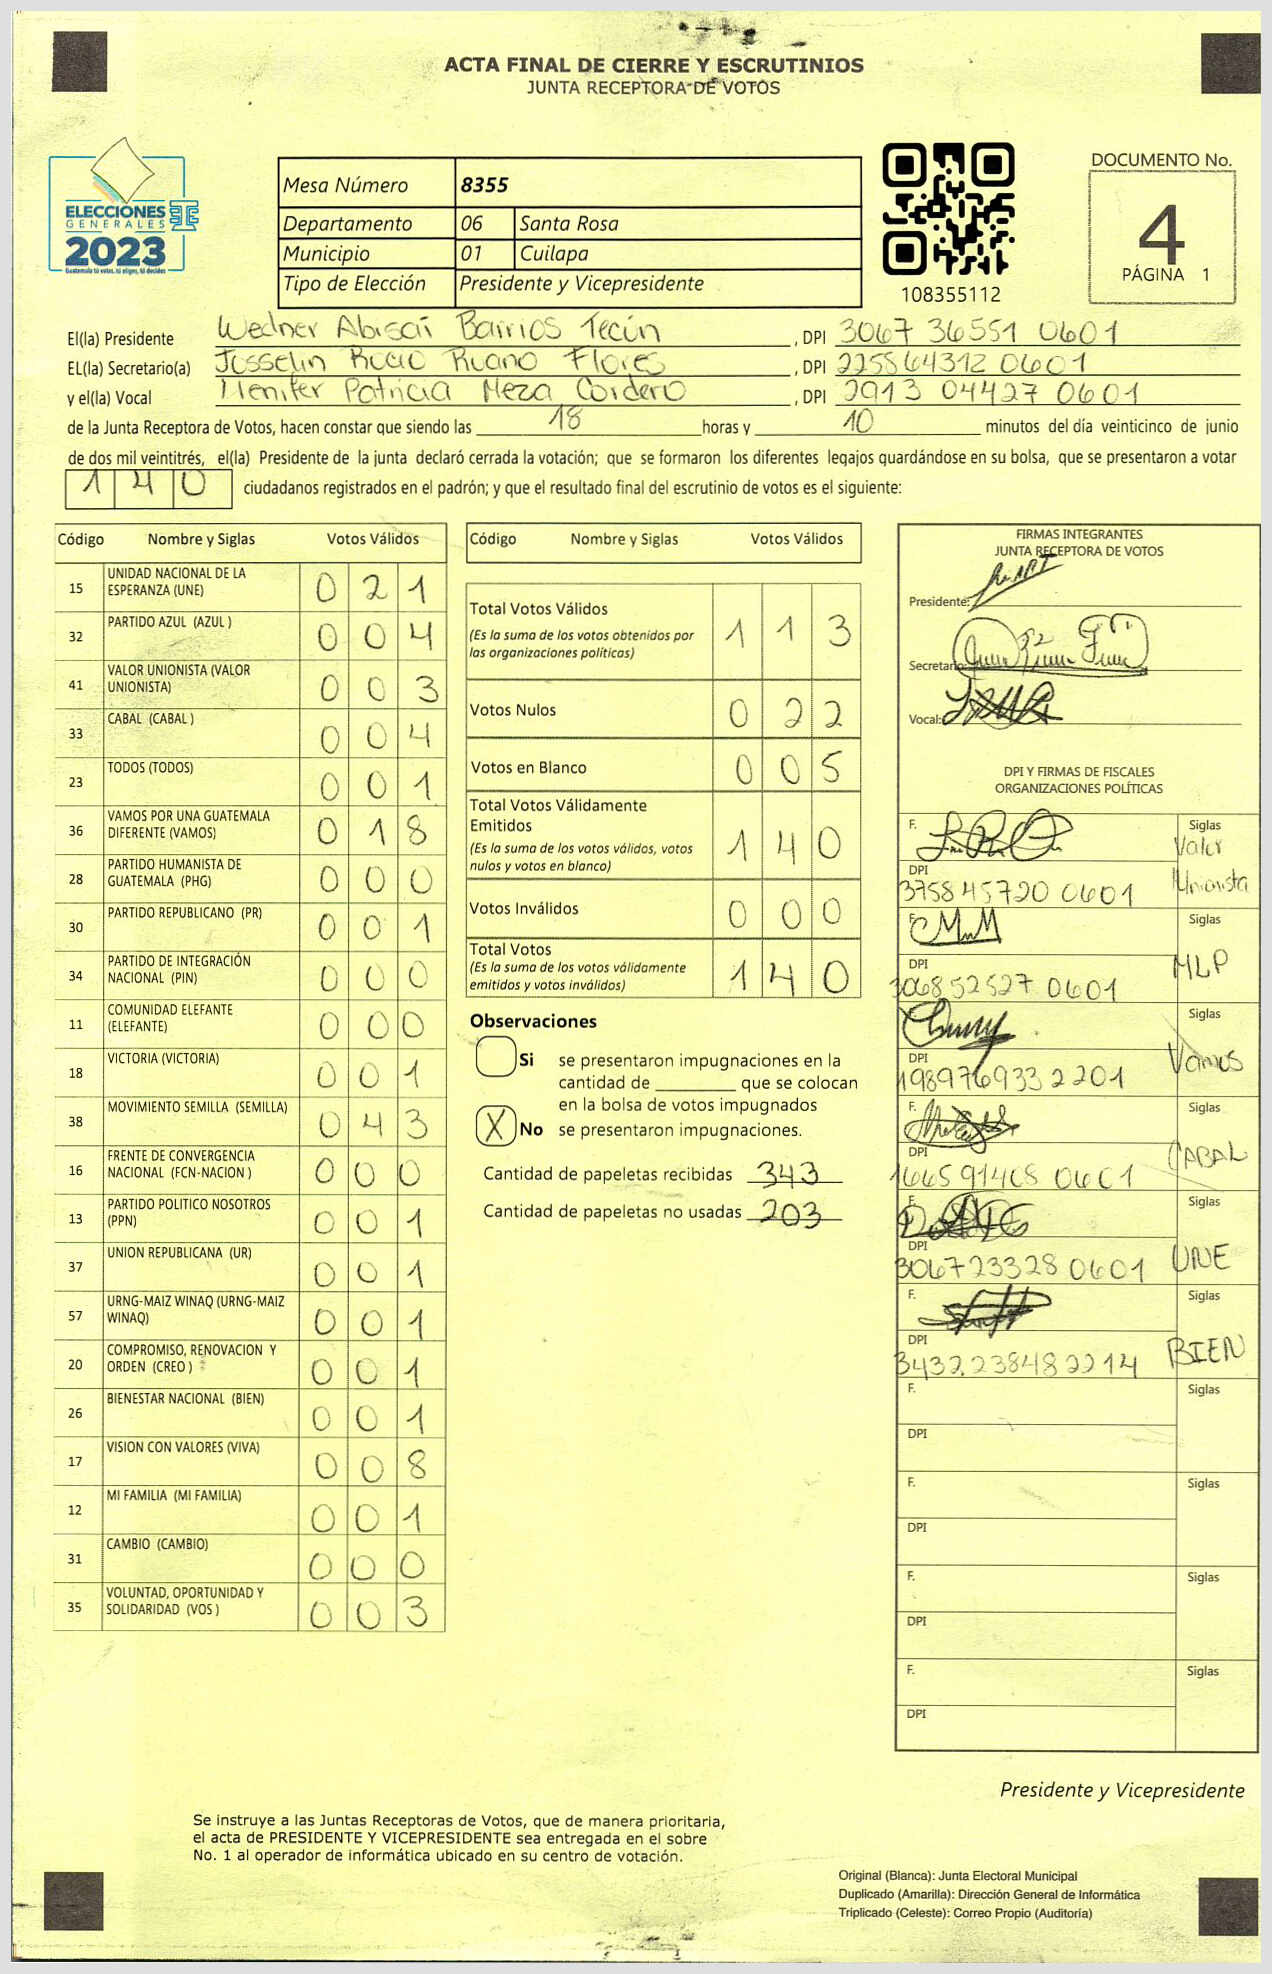 ACTA FINAL DE CIERRE Y ESCRUTINIOS
JUNTA RECEPTORA DE VOTOS
ELECCIONES
GENERALES
2023
Guatemala tú votas, tú eliges, tú decides
Mesa Número 8355
Departamento 06 Santa Rosa
Municipio 01 Cuilapa
Tipo de Elección Presidente y Vicepresidente
108355112
DOCUMENTO No.
4
PÁGINA 1
El(la) Presidente Wedner Abisaí Barrios Tecún , DPI 3067 36551 0601
EL(la) Secretario(a) Josselin Ruano Flores , DPI 225864312 0601
y el(la) Vocal Patricia Meza Cordero , DPI 2913 04427 0601
de la Junta Receptora de Votos, hacen constar que siendo las 18 horas y 10 minutos del día veinticinco de junio
de dos mil veintitrés, el(la) Presidente de la junta declaró cerrada la votación; que se formaron los diferentes legajos guardándose en su bolsa, que se presentaron a votar
140 ciudadanos registrados en el padrón; y que el resultado final del escrutinio de votos es el siguiente:
Código Nombre y Siglas Votos Válidos
15 UNIDAD NACIONAL DE LA ESPERANZA (UNE) 0 2 1
32 PARTIDO AZUL (AZUL ) 0 0 4
41 VALOR UNIONISTA (VALOR UNIONISTA) 0 0 3
33 CABAL (CABAL ) 0 0 4
23 TODOS (TODOS) 0 0 1
36 VAMOS POR UNA GUATEMALA DIFERENTE (VAMOS) 0 1 8
28 PARTIDO HUMANISTA DE GUATEMALA (PHG) 0 0 0
30 PARTIDO REPUBLICANO (PR) 0 0 1
34 PARTIDO DE INTEGRACIÓN NACIONAL (PIN) 0 0 0
11 COMUNIDAD ELEFANTE (ELEFANTE) 0 0 0
18 VICTORIA (VICTORIA) 0 0 1
38 MOVIMIENTO SEMILLA (SEMILLA) 0 4 3
16 FRENTE DE CONVERGENCIA NACIONAL (FCN-NACION ) 0 0 0
13 PARTIDO POLITICO NOSOTROS (PPN) 0 0 1
37 UNION REPUBLICANA (UR) 0 0 1
57 URNG-MAIZ WINAQ (URNG-MAIZ WINAQ) 0 0 1
20 COMPROMISO, RENOVACION Y ORDEN (CREO ) 0 0 1
26 BIENESTAR NACIONAL (BIEN) 0 0 1
17 VISION CON VALORES (VIVA) 0 0 8
12 MI FAMILIA (MI FAMILIA) 0 0 1
31 CAMBIO (CAMBIO) 0 0 0
35 VOLUNTAD, OPORTUNIDAD Y SOLIDARIDAD (VOS ) 0 0 3
Código Nombre y Siglas Votos Válidos
Total Votos Válidos 1 1 3
(Es la suma de los votos obtenidos por
las organizaciones políticas)
Votos Nulos 0 2 2
Votos en Blanco 0 0 5
Total Votos Válidamente
Emitidos 1 4 0
(Es la suma de los votos válidos, votos
nulos y votos en blanco)
Votos Inválidos 0 0 0
Total Votos 1 4 0
(Es la suma de los votos válidamente
emitidos y votos inválidos)
Observaciones
Si se presentaron impugnaciones en la
cantidad de ________ que se colocan
en la bolsa de votos impugnados
X No se presentaron impugnaciones.
Cantidad de papeletas recibidas 343
Cantidad de papeletas no usadas 203
FIRMAS INTEGRANTES
JUNTA RECEPTORA DE VOTOS
Presidente:
Secretario:
Vocal:
DPI Y FIRMAS DE FISCALES
ORGANIZACIONES POLÍTICAS
F. Siglas Valor Unionista
DPI 375845720 0601
F. Siglas MLP
DPI 306852527 0601
F. Siglas Vamos
DPI 198976933 2201
F. Siglas CABAL
DPI 166591468 0601
F. Siglas UNE
DPI 306723328 0601
F. Siglas BIEN
DPI 343223848 2214
F. Siglas
DPI
F. Siglas
DPI
F. Siglas
DPI
F. Siglas
DPI
Presidente y Vicepresidente
Se instruye a las Juntas Receptoras de Votos, que de manera prioritaria,
el acta de PRESIDENTE Y VICEPRESIDENTE sea entregada en el sobre
No. 1 al operador de informática ubicado en su centro de votación.
Original (Blanca): Junta Electoral Municipal
Duplicado (Amarilla): Dirección General de Informática
Triplicado (Celeste): Correo Propio (Auditoría)